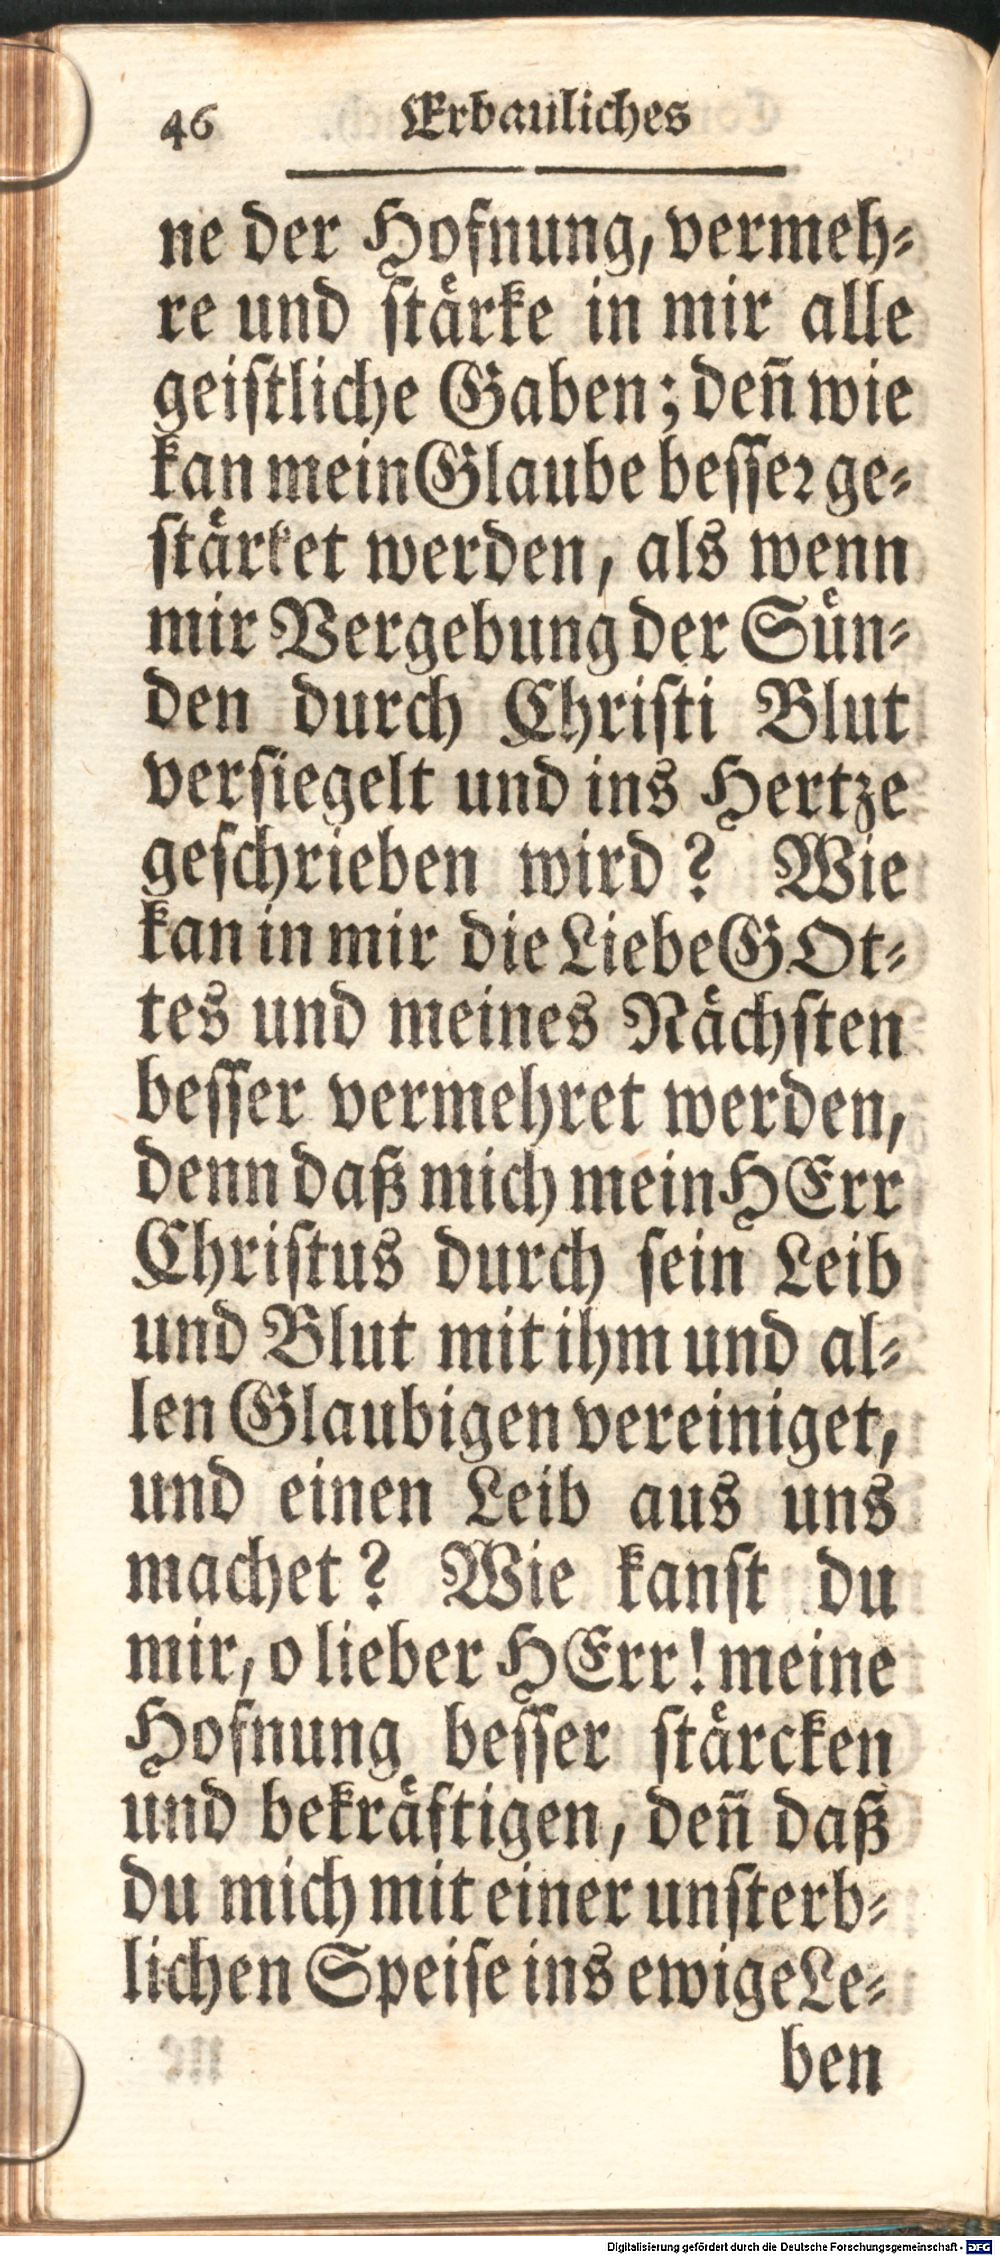 46 Erbauliches
ne der Hofnung, vermeh⸗
re und ſtaͤrke in mir alle
geiſtliche Gaben; deñ wie
kan mein Glaube beſſeꝛ ge⸗
ſtaͤrket werden, als wenn
mir Vergebung der Suͤn⸗
den durch Chriſti Blut
verſiegelt und ins Hertze
geſchrieben wird? Wie
kan in mir die Liebe GOt⸗
tes und meines Naͤchſten
beſſer vermehret werden,
denn daß mich mein HErr
Chriſtus durch ſein Leib
und Blut mit ihm und al⸗
len Glaubigen vereiniget,
und einen Leib aus uns
machet? Wie kanſt du
mir, o lieber HErr! meine
Hofnung beſſer ſtaͤrcken
und bekraͤftigen, deñ daß
du mich mit einer unſterb⸗
lichen Speiſe ins ewige Le⸗
ben
Digitalisierung gefördert durch die Deutsche Forschungsgemeinschaft - DFG